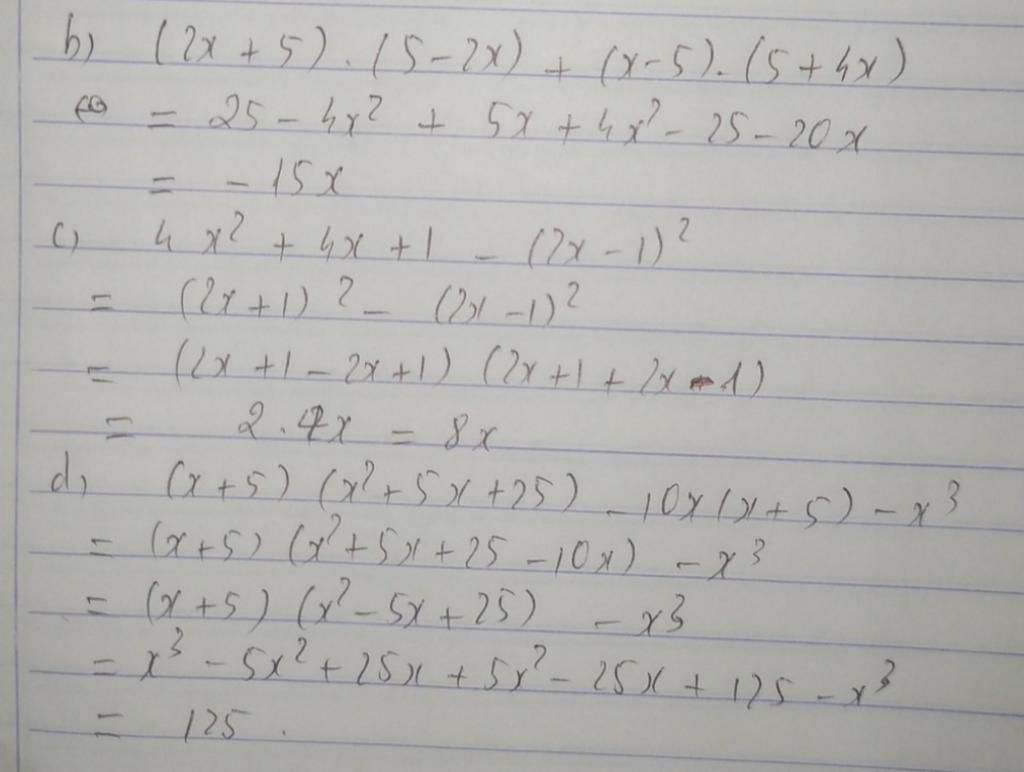 b) (2x + 5) . (5 - 2x) + (x - 5) . (5 + 4x)
= 25 - 4x² + 5x + 4x² - 25 - 20x
= - 15x
c) 4x² + 4x + 1 - (2x - 1)²
= (2x + 1)² - (2x - 1)²
= (2x + 1 - 2x + 1) (2x + 1 + 2x - 1)
= 2 . 4x = 8x
d) (x + 5) (x² + 5x + 25) - 10x (x + 5) - x³
= (x + 5) (x² + 5x + 25 - 10x) - x³
= (x + 5) (x² - 5x + 25) - x³
= x³ - 5x² + 25x + 5x² - 25x + 125 - x³
= 125 .